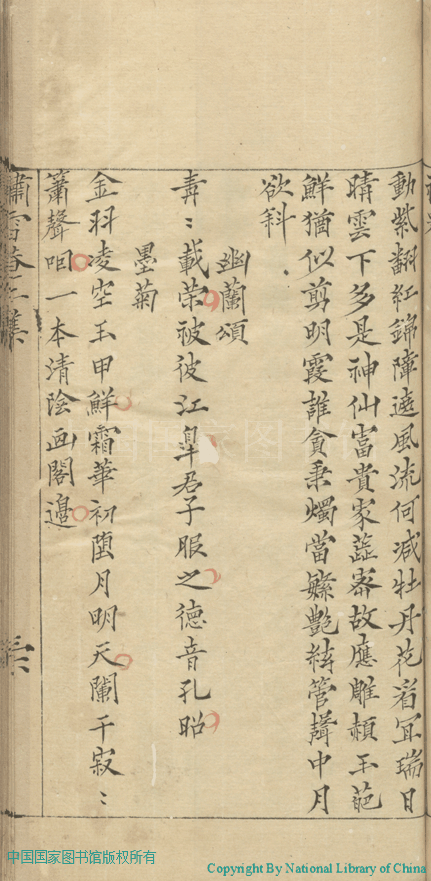 動紫翻紅錦障遮風流何减牡丹花看宜瑞日
晴雲下多是神仙富貴家蕋密故應雕頳玉葩
鮮猶似剪明霞誰貪秉燭當緐艷絃管譁中月
欲斜
幽蘭頌
壽〻載荣被彼江臯君子服之德音孔昭
墨菊
金羽凌空玉甲鮮霜華初墮月明天闌干寂〻
簫聲咽一本清陰画閣邊
中国国家图书馆版权所有
Copyright By National Library of China